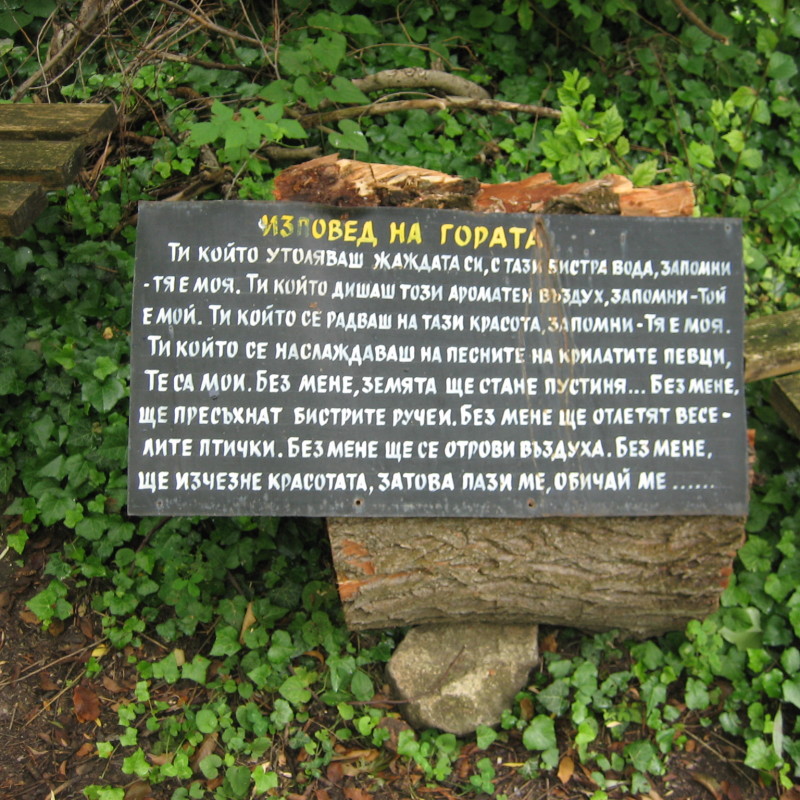 ИЗПОВЕД НА ГОРАТА
ТИ КОЙТО УТОЛЯВАШ ЖАЖДАТА СИ, С ТАЗИ БИСТРА ВОДА, ЗАПОМНИ
- ТЯ Е МОЯ. ТИ КОЙТО ДИШАШ ТОЗИ АРОМАТЕН ВЪЗДУХ, ЗАПОМНИ - ТОЙ
Е МОЙ. ТИ КОЙТО СЕ РАДВАШ НА ТАЗИ КРАСОТА, ЗАПОМНИ - ТЯ Е МОЯ.
ТИ КОЙТО СЕ НАСЛАЖДАВАШ НА ПЕСНИТЕ НА КРИЛАТИТЕ ПЕВЦИ,
ТЕ СА МОИ. БЕЗ МЕНЕ, ЗЕМЯТА ЩЕ СТАНЕ ПУСТИНЯ... БЕЗ МЕНЕ,
ЩЕ ПРЕСЪХНАТ БИСТРИТЕ РУЧЕИ. БЕЗ МЕНЕ ЩЕ ОТЛЕТЯТ ВЕСЕ-
ЛИТЕ ПТИЧКИ. БЕЗ МЕНЕ ЩЕ СЕ ОТРОВИ ВЪЗДУХА. БЕЗ МЕНЕ,
ЩЕ ИЗЧЕЗНЕ КРАСОТАТА, ЗАТОВА ПАЗИ МЕ, ОБИЧАЙ МЕ ......